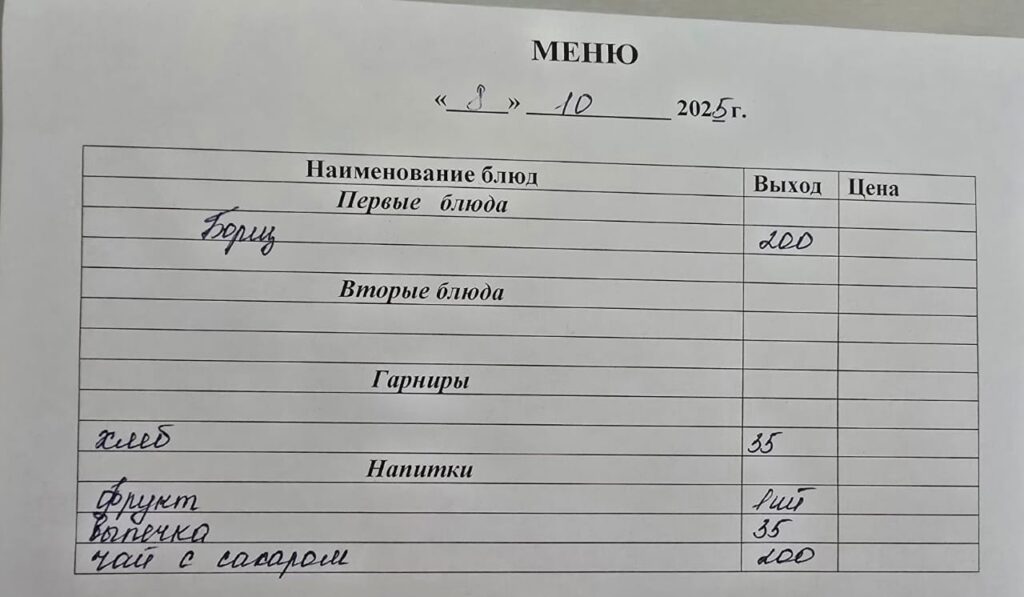 МЕНЮ
« 8 » 10 2025 г.
Наименование блюд Выход Цена
Первые блюда
Борщ 200
Вторые блюда
Гарниры
хлеб 35
Напитки
фрукт 1шт
выпечка 35
чай с сахаром 200